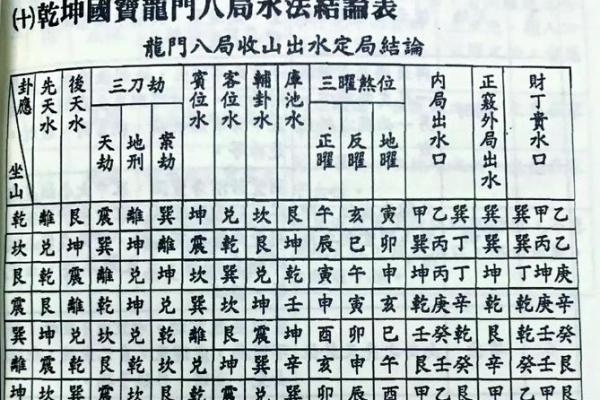 ㈩乾坤國寶龍門八局水法結論表
龍門八局收山出水定局結論
卦應 坐山 先天水 後天水 三刀劫 天劫 地刑 案劫 賓位水 客位水 輔卦水 庫池水 三曜煞位 正曜 反曜 地曜 內局出水口 正竅外局出水 財丁貴水口
乾 離 艮 震 離 巽 坤 兌 坎 艮 午 亥 寅 甲乙巽 巽 巽甲乙
坎 兌 坤 巽 坤 離 震 乾 艮 坤 辰 巳 卯 巽丙丁 巽 巽丙乙
艮 乾 震 離 兌 坤 坎 巽 兌 乾 寅 午 申 坤丙丁 坤 丁坤庚
震 艮 離 乾 坤 兌 巽 坎 坤 壬 申 寅 亥 乾庚辛 乾 乾庚辛
巽 坤 兌 坎 兌 乾 離 艮 震 坤 酉 卯 巳 壬癸乾 艮 乾壬癸
離 震 乾 艮 乾 坎 兌 坤 巽 辛 亥 申 午 艮壬癸 乾 癸壬艮
坤 坎 巽 震 坎 艮 乾 震 兌 巽 卯 辰 酉 甲乙艮 甲 乙艮甲